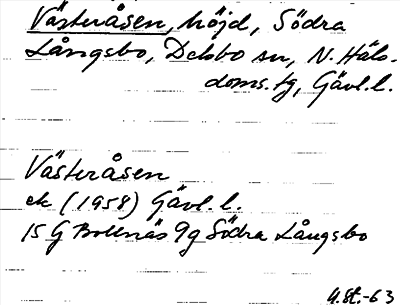 Västeråsen, höjd, Södra
Långsbo, Delsbo sn, N. Häls.
doms.tg, Gävl.l.
Västeråsen
ek (1958) Gävl.l.
15 G Bollnäs 9g Södra Långsbo
G.St.-63